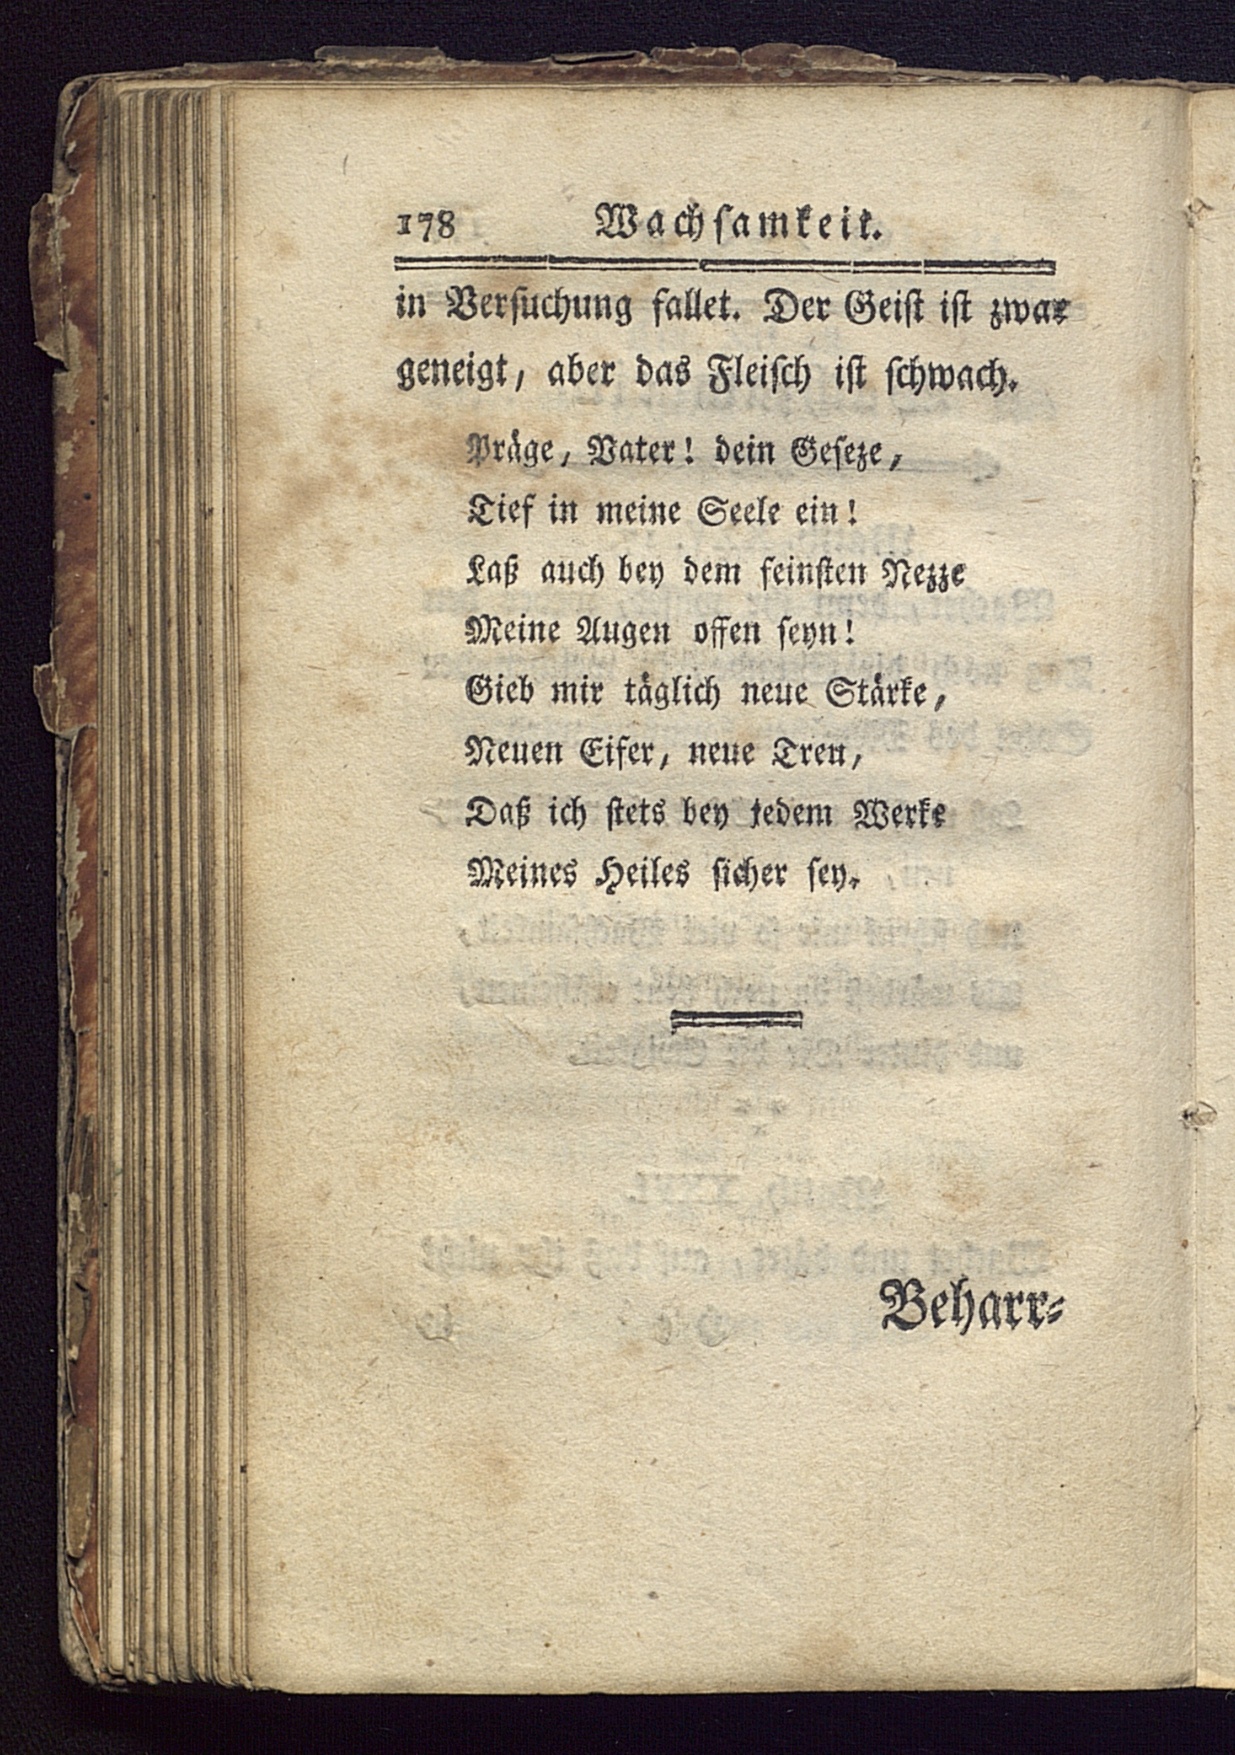 178 Wachsamkeit.
in Versuchung fallet. Der Geist ist zwar
geneigt, aber das Fleisch ist schwach.
Präge, Vater! dein Geseze,
Tief in meine Seele ein!
Laß auch bey dem feinsten Nezze
Meine Augen offen seyn!
Gieb mir täglich neue Stärke,
Neuen Eifer, neue Treu,
Daß ich stets bey jedem Werke
Meines Heiles sicher sey.
Beharr-